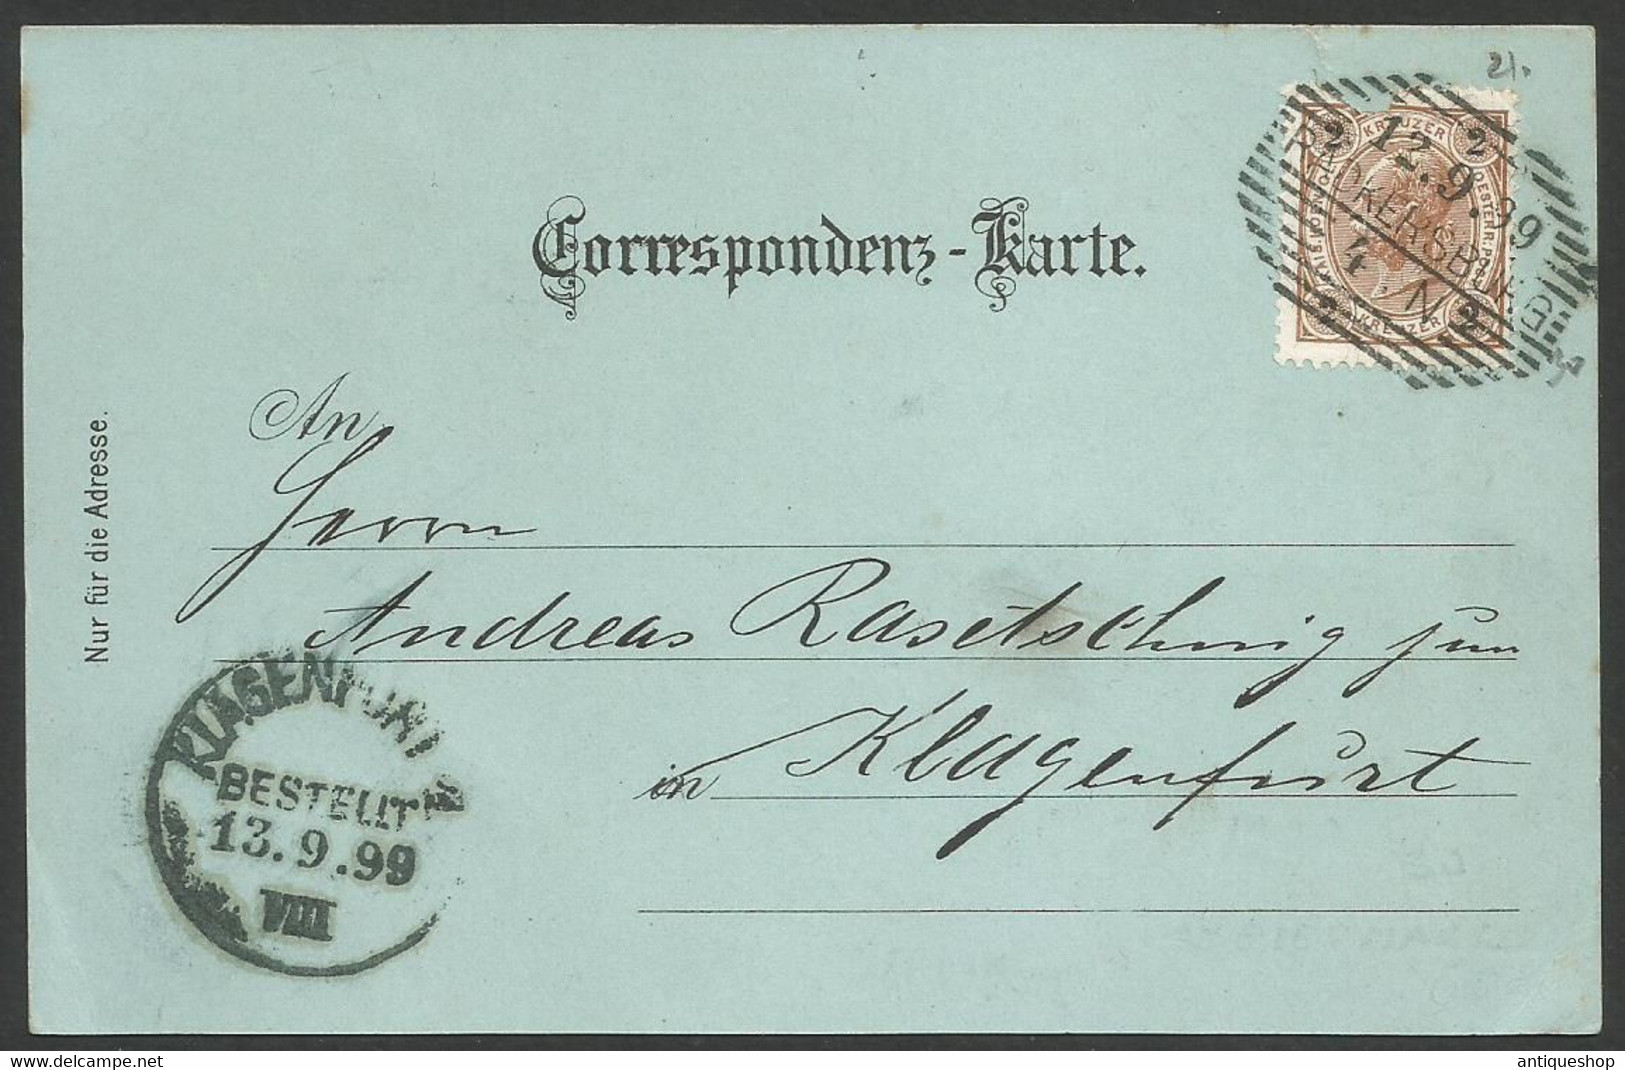 21.
Correspondenz-Karte.
2 KREUZER 2
OESTERR. POST
KAIS. KÖN.
2 KREUZER 2
RADKERSBURG
12.9.99
4 N
Nur für die Adresse.
An
Herrn
Andreas Rasetschnig jun
in Klagenfurt
KLAGENFURT
BESTELLT
13.9.99
VIII
www.delcampe.net
antiqueshop